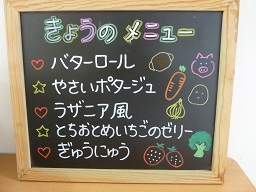 きょうの メニュー
♡ バターロール
☆ やさいポタージュ
♡ ラザニア風
☆ とちおとめいちごのゼリー
♡ ぎゅうにゅう